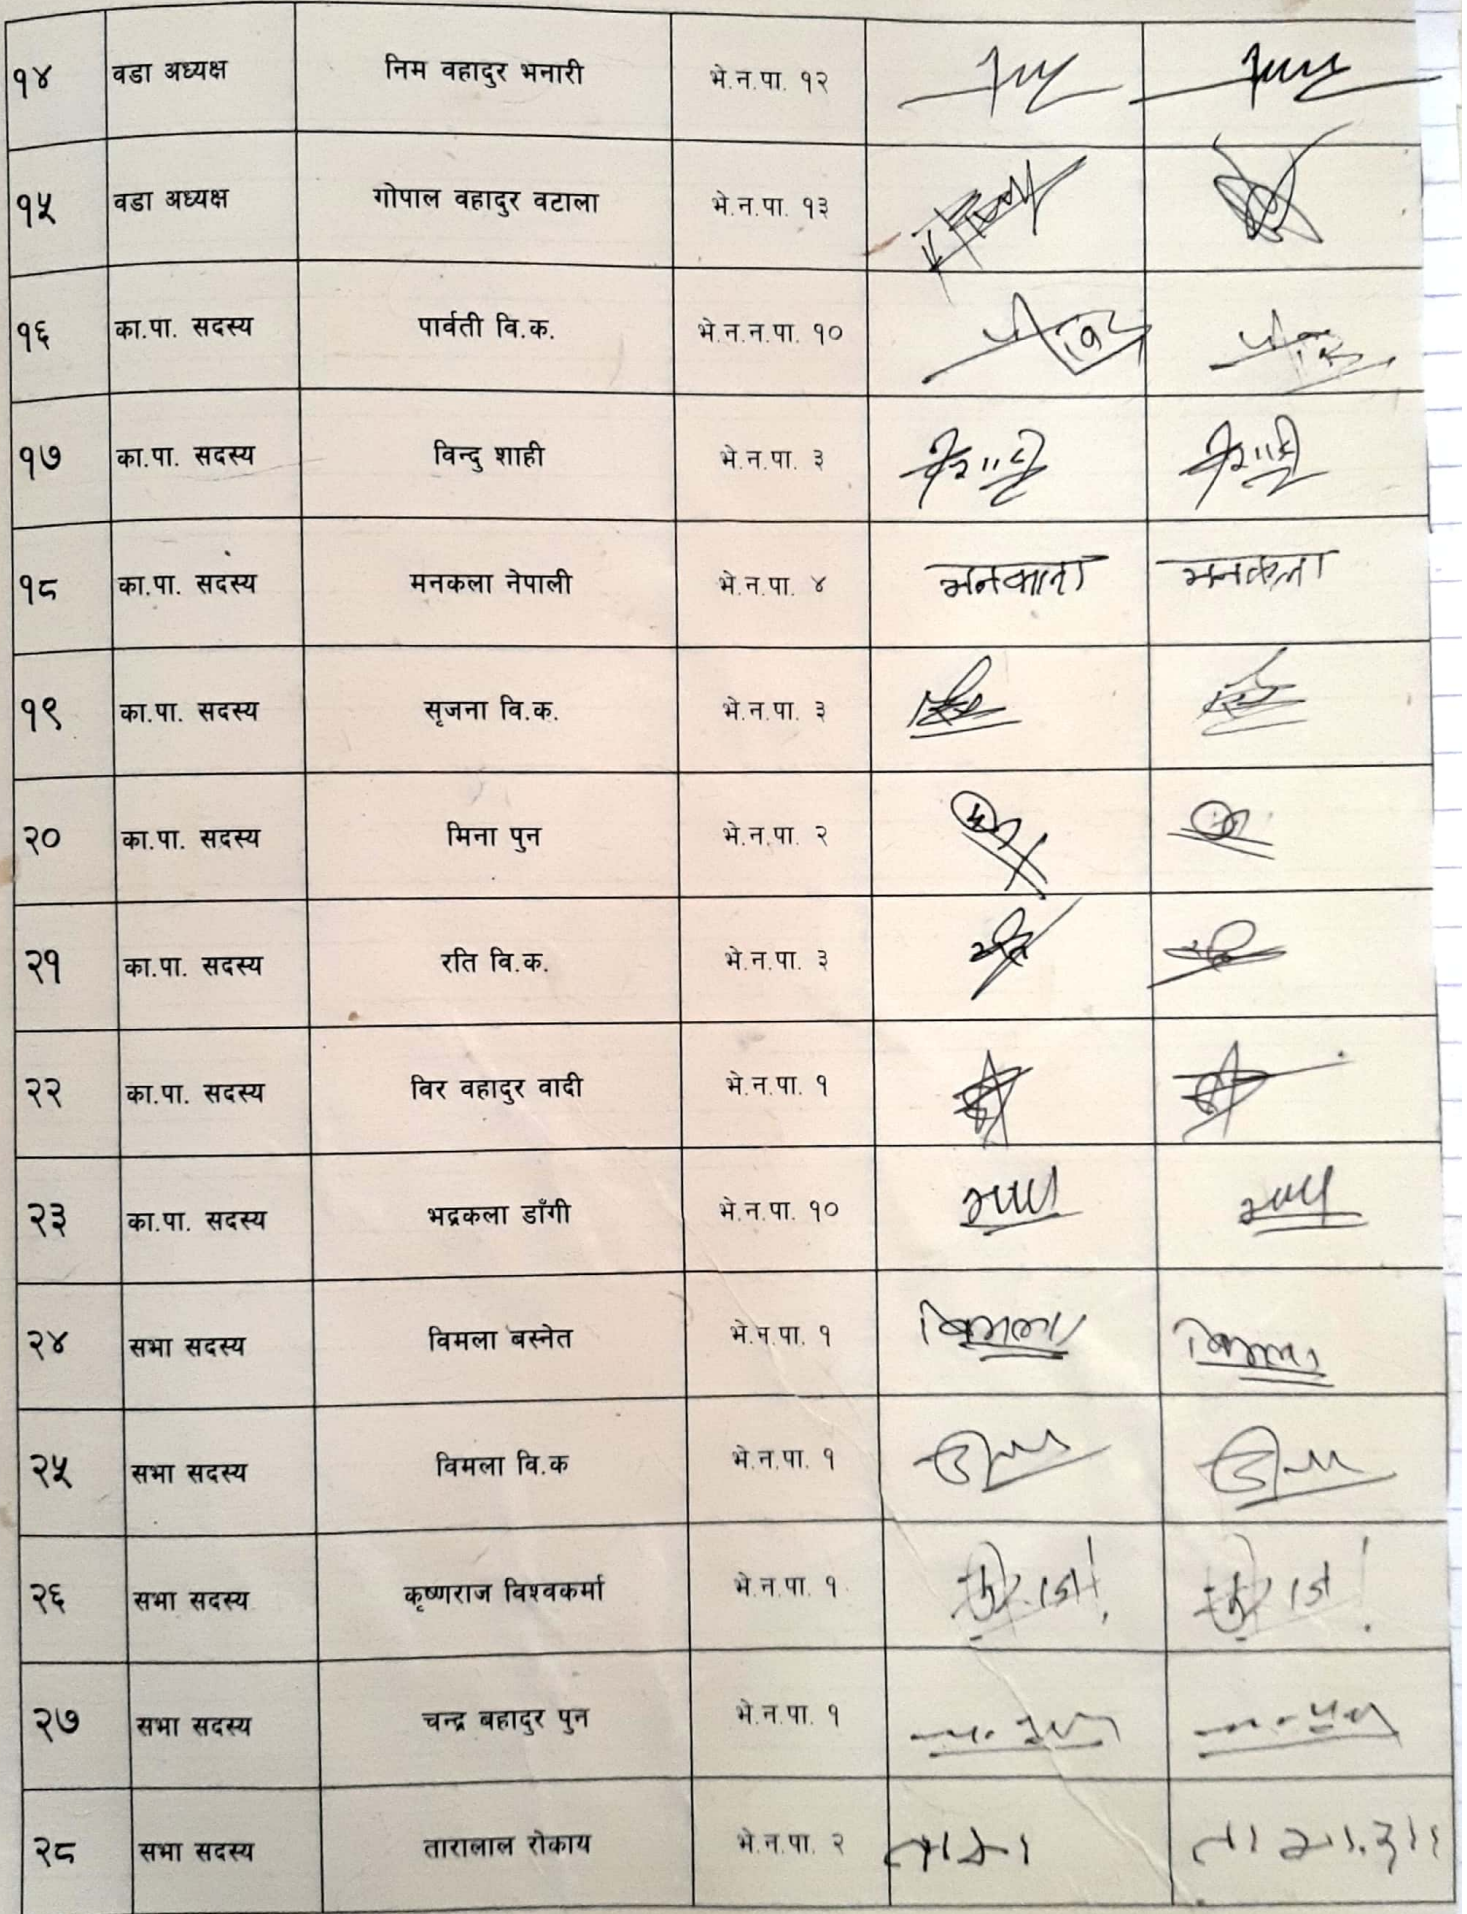 १४ वडा अध्यक्ष निम वहादुर भनारी भे.न.पा. १२
१५ वडा अध्यक्ष गोपाल वहादुर वटाला भे.न.पा. १३
१६ का.पा. सदस्य पार्वती वि.क. भे.न.न.पा. १०
१७ का.पा. सदस्य विन्दु शाही भे.न.पा. ३
१८ का.पा. सदस्य मनकला नेपाली भे.न.पा. ४ मनकला मनकला
१९ का.पा. सदस्य सृजना वि.क. भे.न.पा. ३
२० का.पा. सदस्य मिना पुन भे.न.पा. २
२१ का.पा. सदस्य रति वि.क. भे.न.पा. ३
२२ का.पा. सदस्य विर वहादुर वादी भे.न.पा. १
२३ का.पा. सदस्य भद्रकला डाँगी भे.न.पा. १०
२४ सभा सदस्य विमला बस्नेत भे.न.पा. १ विमला विमला
२५ सभा सदस्य विमला वि.क भे.न.पा. १
२६ सभा सदस्य कृष्णराज विश्वकर्मा भे.न.पा. १
२७ सभा सदस्य चन्द्र बहादुर पुन भे.न.पा. १
२८ सभा सदस्य तारालाल रोकाय भे.न.पा. २